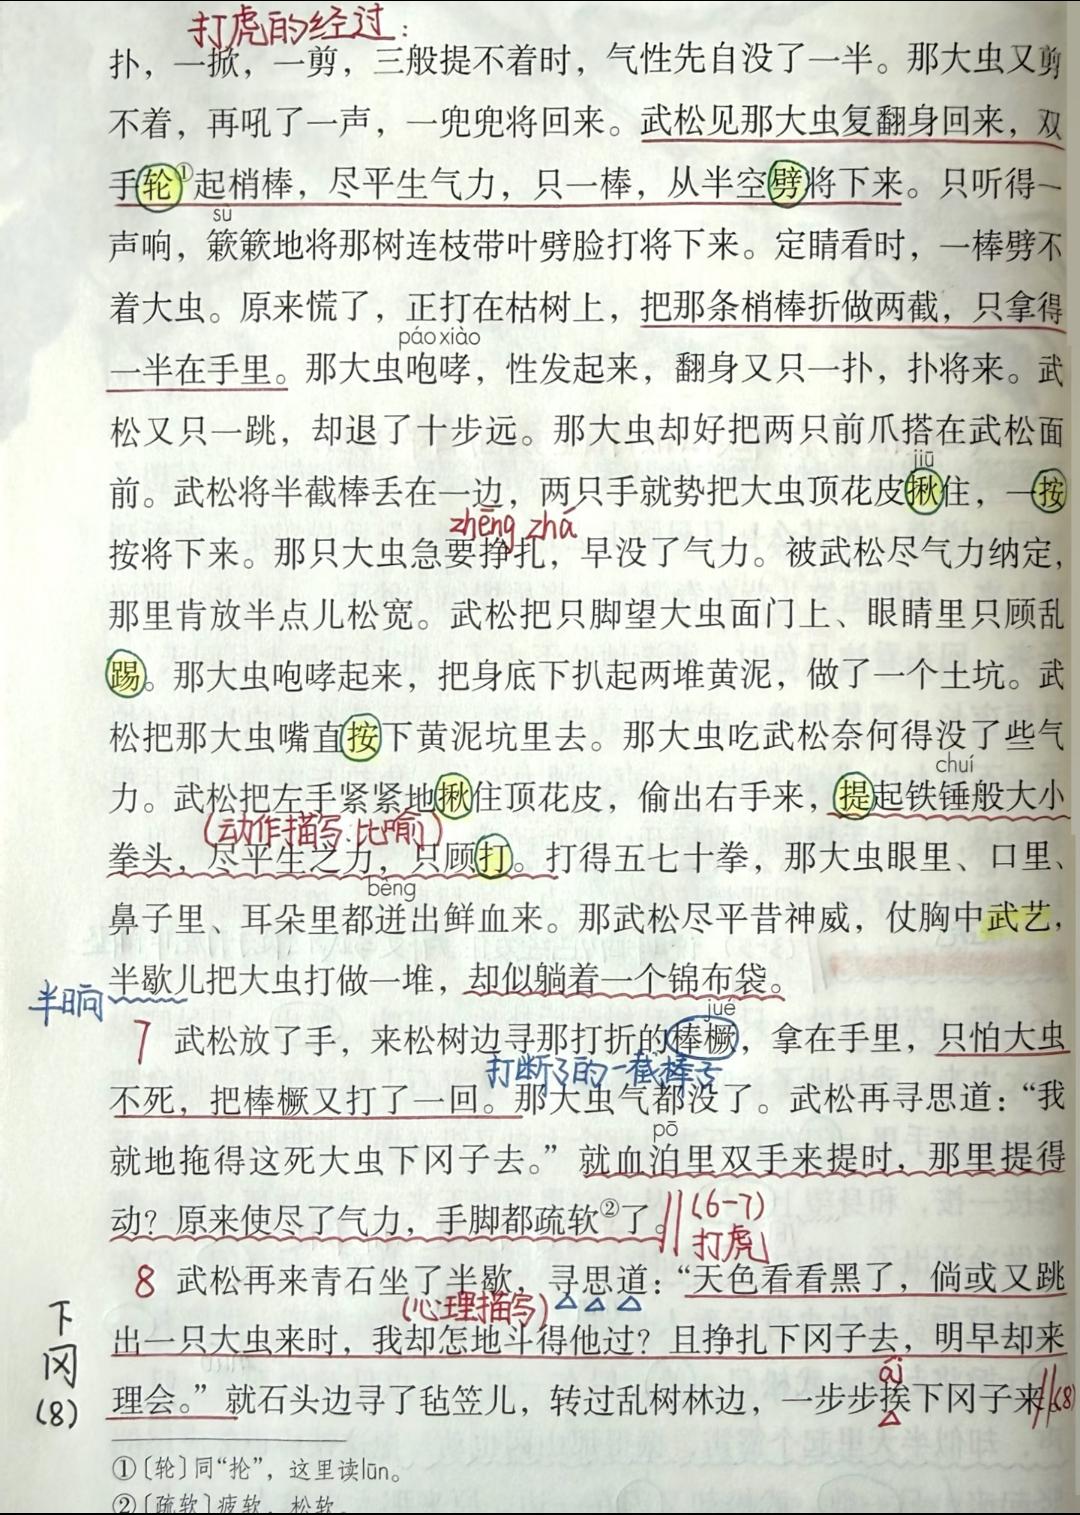 打虎的经过：
扑，一掀，一剪，三般提不着时，气性先自没了一半。那大虫又剪
不着，再吼了一声，一兜兜将回来。武松见那大虫复翻身回来，双
手轮①起梢棒，尽平生气力，只一棒，从半空劈将下来。只听得一
sù
声响，簌簌地将那树连枝带叶劈脸打将下来。定睛看时，一棒劈不
着大虫。原来慌了，正打在枯树上，把那条梢棒折做两截，只拿得
páo xiào
一半在手里。那大虫咆哮，性发起来，翻身又只一扑，扑将来。武
松又只一跳，却退了十步远。那大虫却好把两只前爪搭在武松面
jiū
前。武松将半截棒丢在一边，两只手就势把大虫顶花皮揪住，一按
zhēng zhá
按将下来。那只大虫急要挣扎，早没了气力。被武松尽气力纳定，
那里肯放半点儿松宽。武松把只脚望大虫面门上、眼睛里只顾乱
踢。那大虫咆哮起来，把身底下扒起两堆黄泥，做了一个土坑。武
松把那大虫嘴直按下黄泥坑里去。那大虫吃武松奈何得没了些气
chuí
力。武松把左手紧紧地揪住顶花皮，偷出右手来，提起铁锤般大小
（动作描写 比喻）
拳头，尽平生之力，只顾打。打得五七十拳，那大虫眼里、口里、
bèng
鼻子里、耳朵里都迸出鲜血来。那武松尽平昔神威，仗胸中武艺，
半歇儿把大虫打做一堆，却似躺着一个锦布袋。
半晌
jué
7 武松放了手，来松树边寻那打折的棒橛，拿在手里，只怕大虫
打断了的一截棒子
不死，把棒橛又打了一回。那大虫气都没了。武松再寻思道：“我
pō
就地拖得这死大虫下冈子去。”就血泊里双手来提时，那里提得
动？原来使尽了气力，手脚都疏软②了。
(6-7)
打虎
8 武松再来青石坐了半歇，寻思道：“天色看看黑了，倘或又跳
（心理描写）
出一只大虫来时，我却怎地斗得他过？且挣扎下冈子去，明早却来
āi
理会。”就石头边寻了毡笠儿，转过乱树林边，一步步挨下冈子来
(8)
下
冈
(8)
①〔轮〕同“抡”，这里读lūn。
②〔疏软〕疲软，松软。